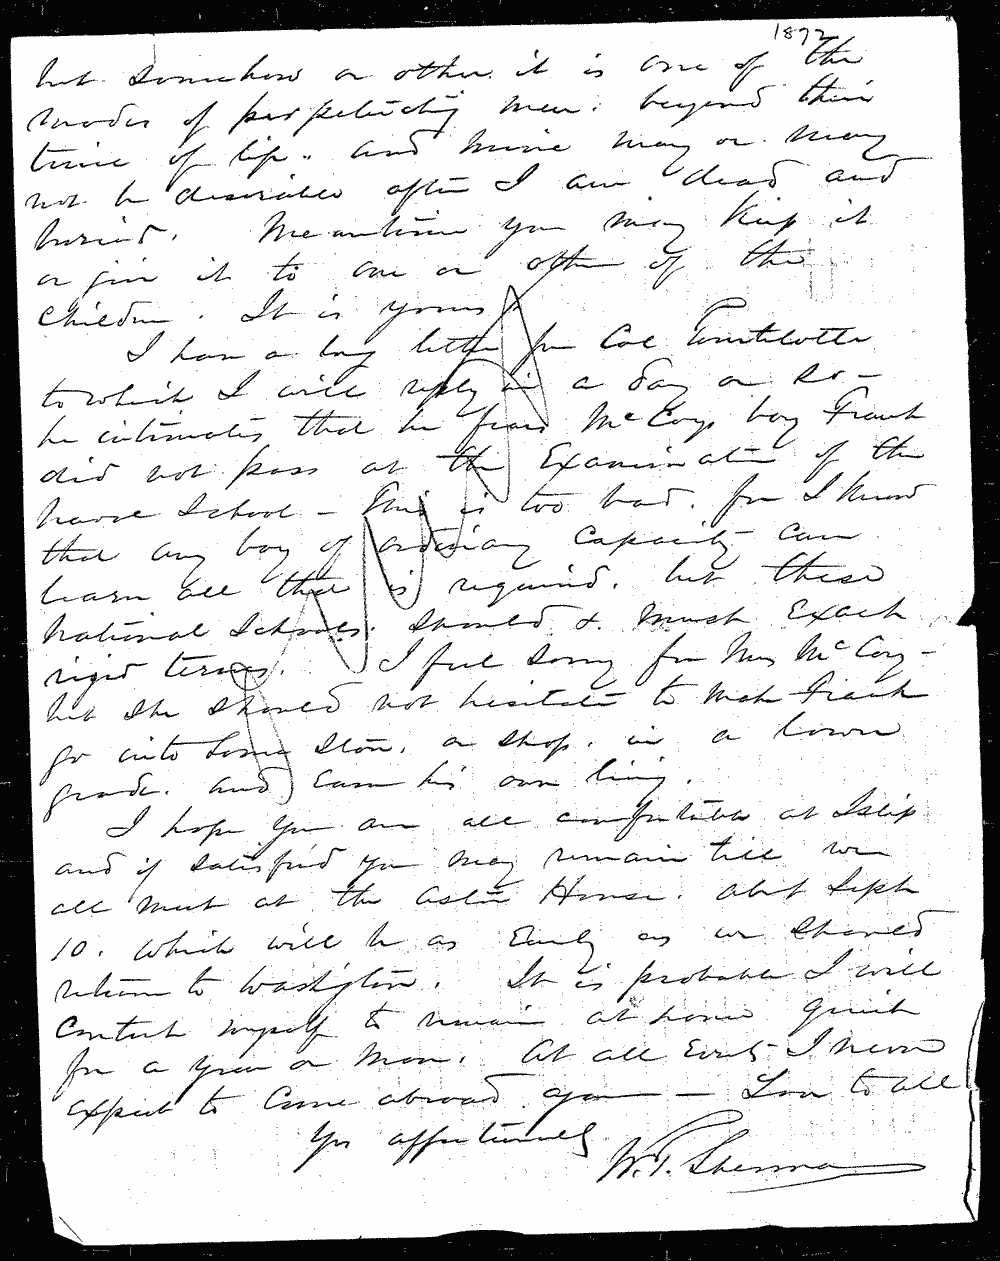 1872
but somehow or other it is one of the
modes of perpetuating men beyond their
time of life. and mine may or may
not be desirable after I am dead and
buried. Meantime you may keep it
or give it to one or other of the
children. It is yours.
I have a long letter from Col
to which I will reply in a day or so -
he intimates that he fears McCoys boy Frank
did not pass at the Examination of the
Naval School - This is too bad. for I know
that any boy of ordinary capacity can
learn all that is required. but these
National Schools. should & must Exact
rigid terms. I feel sorry for Mrs McCoy -
but she should not hesitate to make Frank
go into some store. or shop. in a lower
grade. and earn his own living.
I hope you are all comfortable at Islip
and if satisfied you may remain till we
all meet at the Astor House. about Sept
10. which will be as Early as we should
return to Washington. It is probable I will
content myself to remain at home quiet
for a year or more. At all Events I never
expect to come abroad again - Love to all
Yrs affectionately
W. T. Sherman